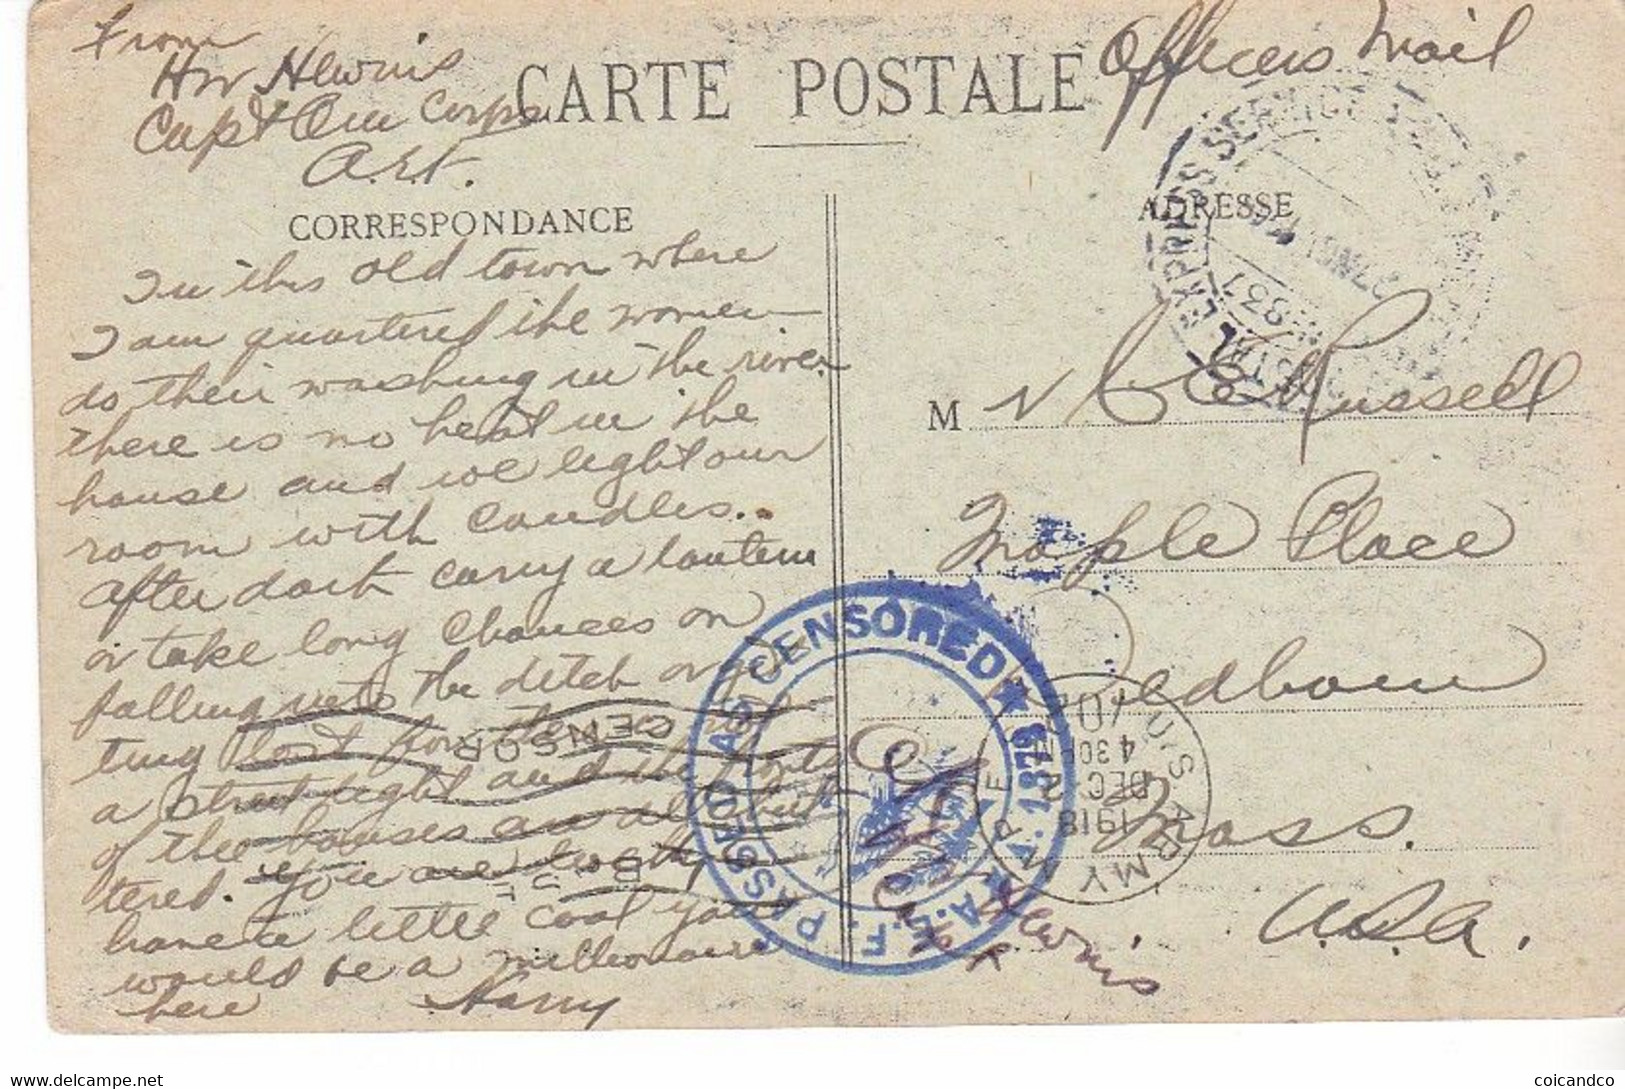 From
HW Hewins
Capt Qm Corps
CARTE POSTALE
Officers Mail
CORRESPONDANCE
ADRESSE
In this old town where
I am quartered the women
do their washing in the river
there is no heat in the
house and we light our
room with candles..
after dark carry a lantern
or take long chances on
falling into the ditch or get
ting lost for there
a street light and the fronts
of the houses are all shut
tered. You are lucky
have a little coal you
would be a millionaire
here Harry
M r C E Russell
Maple Place
Dedham
Mass.
U.S.A.
EXPRESS SERVICE
837
A.E.F. PASSED AS CENSORED ★
A. 1878
U.S ARMY M.P.E.
702
4 30 PM
DEC 2
1918
CENSOR
BASE
OK
HW Hewins
Capt
coicandco